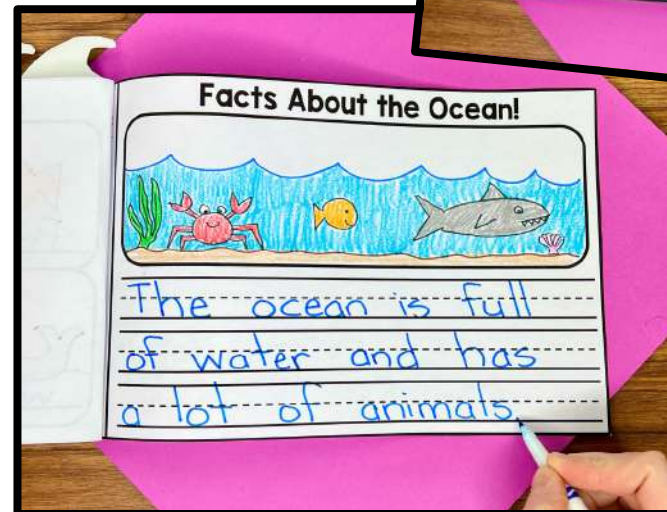 Facts About the Ocean!
The ocean is full
of water and has
a lot of animals.